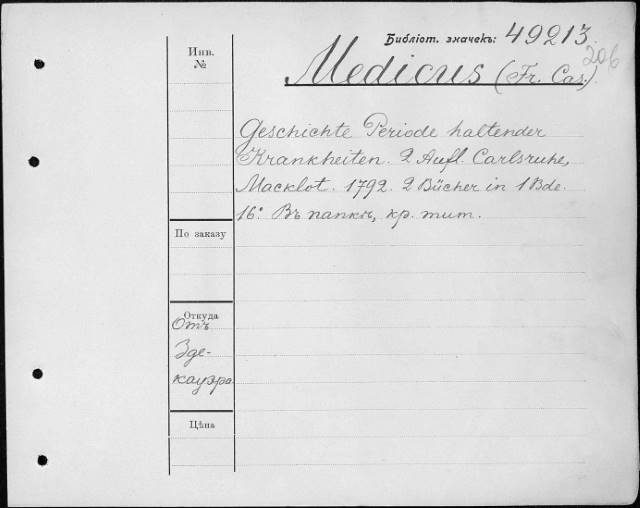 Библіот. значекъ: 49213.
206
Инв.
№
Medicus (Fr. Cas.)
Geschichte Periode haltender
Krankheiten. 2 Aufl. Carlsruhe,
Macklot. 1792. 2 Bücher in 1 Bde.
16°. Въ папкѣ, кр. тит.
По заказу
Откуда
Отъ
Зде-
кауэра
Цѣна